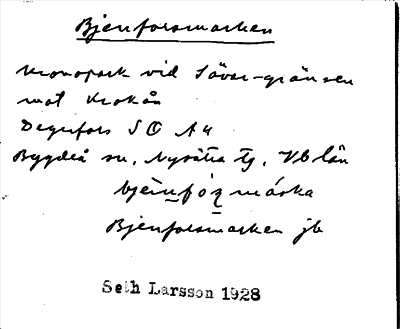 Bjenforsmarken
Kronopark vid Sävar-gränsen
mot Krokån
Degerfors SO A4
Bygdeå sn, Nysätra tg, Vb län
bjènfóʐmáska
Bjenforsmarken jb
Seth Larsson 1928